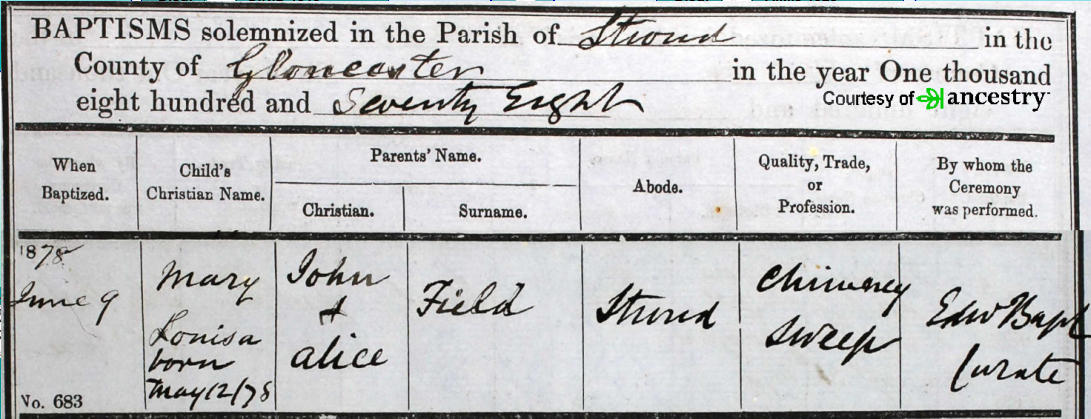 BAPTISMS solemnized in the Parish of Stroud in the
County of Gloucester in the year One thousand
eight hundred and Seventy Eight
Courtesy of ancestry
When Baptized.
Child's Christian Name.
Parents' Name.
Christian.
Surname.
Abode.
Quality, Trade, or Profession.
By whom the Ceremony was performed.
1878
June 9
No. 683
Mary
Louisa
born
May 12/78
John
&
alice
Field
Stroud
Chimney
sweep
Edw
Curate